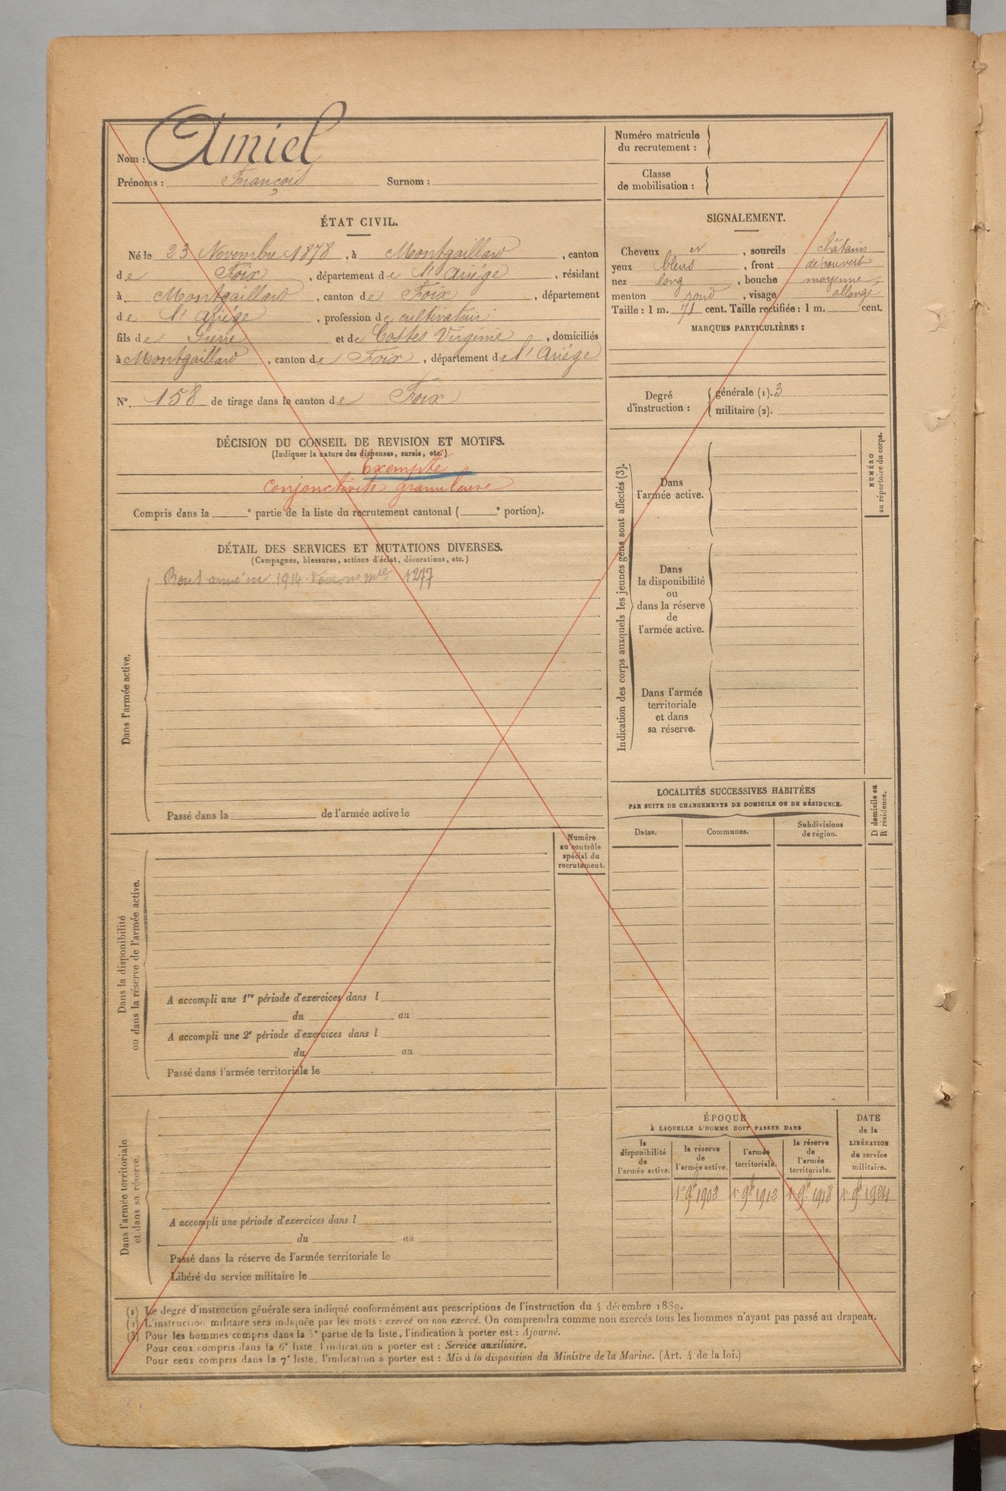 Nom : Amiel
Prénoms : François Surnom :
ÉTAT CIVIL.
Né le 23 Novembre 1878, à Montgaillard, canton
de Foix, département de l'Ariége, résidant
à Montgaillard, canton de Foix, département
de l'Ariége, profession de cultivateur
fils de Pierre et de Costes Virginie, domiciliés
à Montgaillard, canton de Foix, département de l'Ariége
N° 158 de tirage dans le canton de Foix
DÉCISION DU CONSEIL DE REVISION ET MOTIFS.
(Indiquer la nature des dispenses, sursis, etc.)
Exempté
Conjonctivite granuleuse
Compris dans la ______e partie de la liste du recrutement cantonal (______e portion).
DÉTAIL DES SERVICES ET MUTATIONS DIVERSES.
(Campagnes, blessures, actions d'éclat, décorations, etc.)
1914 1277
Dans l'armée active.
Passé dans la ______ de l'armée active le
Numéro
au contrôle
spécial du
recrutement.
Dans la disponibilité
ou dans la réserve de l'armée active.
A accompli une 1re période d'exercices dans l
du au
A accompli une 2e période d'exercices dans l
du au
Passé dans l'armée territoriale le
Dans l'armée territoriale
et dans sa réserve.
A accompli une période d'exercices dans l
du au
Passé dans la réserve de l'armée territoriale le
Libéré du service militaire le
Numéro matricule
du recrutement :
Classe
de mobilisation :
SIGNALEMENT.
Cheveux et, sourcils châtains
yeux bleus, front découvert
nez long, bouche moyenne
menton rond, visage allongé
Taille : 1 m. 71 cent. Taille rectifiée : 1 m. cent.
MARQUES PARTICULIÈRES :
Degré
d'instruction :
générale (1). 3
militaire (2).
Indication des corps auxquels les jeunes gens sont affectés (3).
Dans
l'armée active.
NUMÉRO
au répertoire du corps.
Dans
la disponibilité
ou
dans la réserve
de
l'armée active.
Dans l'armée
territoriale
et dans
sa réserve.
LOCALITÉS SUCCESSIVES HABITÉES
PAR SUITE DE CHANGEMENTS DE DOMICILE OU DE RÉSIDENCE.
D domicile ou
R résidence.
Dates. Communes. Subdivisions
de région.
ÉPOQUE
À LAQUELLE L'HOMME DOIT PASSER DANS
la
disponibilité
de
l'armée active.
la réserve
de
l'armée active.
l'armée
territoriale.
la réserve
de
l'armée
territoriale.
DATE
de la
LIBÉRATION
du service
militaire.
1er 9bre 1903 1er 9bre 1913 1er 9bre 1918 1er 9bre 1924
(1) Le degré d'instruction générale sera indiqué conformément aux prescriptions de l'instruction du 4 décembre 1889.
(2) L'instruction militaire sera indiquée par les mots : exercé ou non exercé. On comprendra comme non exercés tous les hommes n'ayant pas passé au drapeau.
(3) Pour les hommes compris dans la 5e partie de la liste, l'indication à porter est : Ajourné.
Pour ceux compris dans la 6e liste, l'indication à porter est : Service auxiliaire.
Pour ceux compris dans la 7e liste, l'indication à porter est : Mis à la disposition du Ministre de la Marine. (Art. 4 de la loi.)